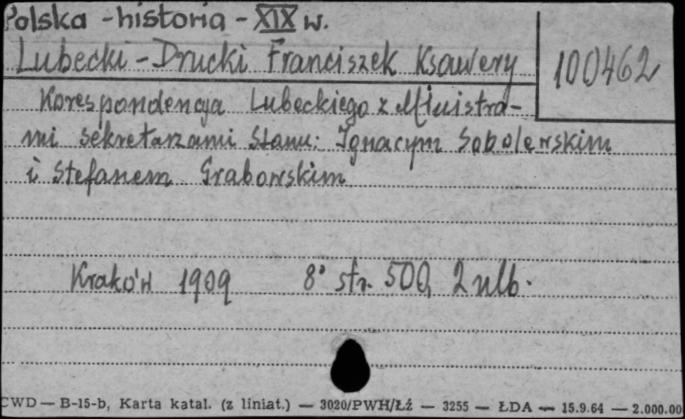 Polska - historia - XIX w.
Lubecki - Drucki Franciszek Ksawery
100462
Korespondencja Lubeckiego z Ministra-
mi sekretarzami Stanu: Ignacym Sobolewskim
i Stefanem Grabowskim
Kraków 1909 8° str. 500, 2 nlb.
CWD — B-15-b, Karta katal. (z liniat.) — 3020/PWH/Łź — 3255 — ŁDA — 15.9.64 — 2.000.00